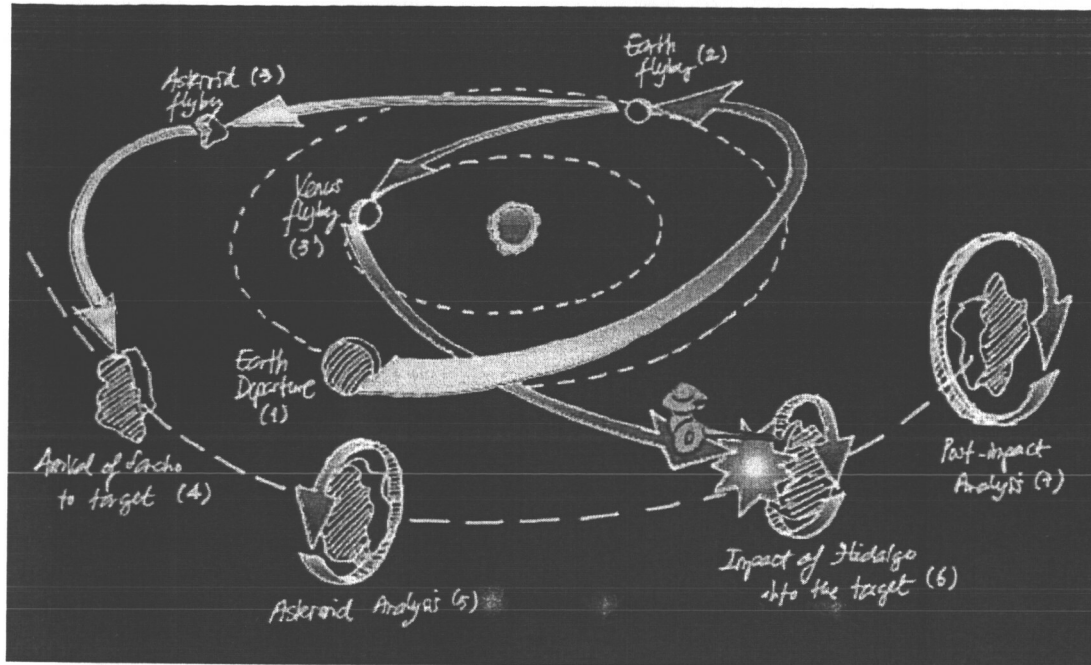 Earth
flyby (2)
Asteroid (3)
flyby
Venus
flyby
(3')
Earth
Departure
(1)
Arrival of Sancho
to target (4)
Asteroid Analysis (5)
Impact of Hidalgo
into the target (6)
Post-impact
Analysis (7)